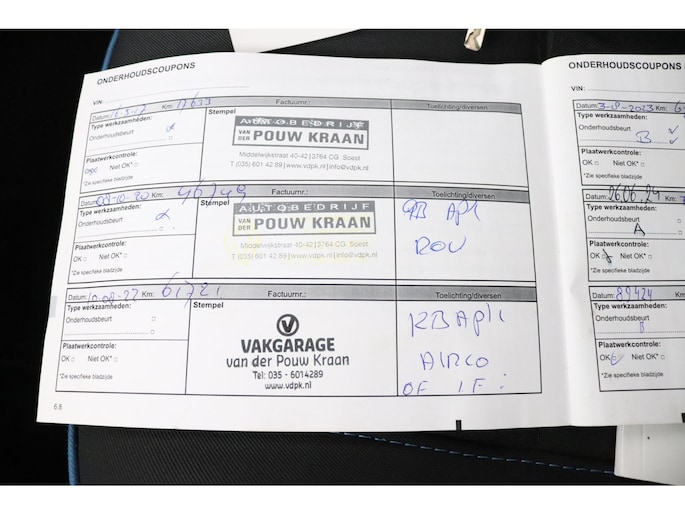 ONDERHOUDSCOUPONS
VIN:
Datum: Km: 17633 Factuurnr.: Toelichting/diversen
Type werkzaamheden: Stempel
Onderhoudsbeurt
AUTOBEDRIJF
VAN DER POUW KRAAN
Plaatwerkcontrole:
OK Niet OK*
*Zie specifieke bladzijde
Middelwijkstraat 40-42 | 3764 CG Soest
T (035) 601 42 89 | www.vdpk.nl | info@vdpk.nl
Datum: Km: 46749 Factuurnr.: Toelichting/diversen
Type werkzaamheden: Stempel
Onderhoudsbeurt
AUTOBEDRIJF
VAN DER POUW KRAAN
Plaatwerkcontrole:
OK Niet OK*
*Zie specifieke bladzijde
Middelwijkstraat 40-42 | 3764 CG Soest
T (035) 601 42 89 | www.vdpk.nl | info@vdpk.nl
Datum: 10-08-22 Km: 61721 Factuurnr.: Toelichting/diversen
Type werkzaamheden: Stempel
Onderhoudsbeurt
VAKGARAGE
van der Pouw Kraan
Tel: 035 - 6014289
www.vdpk.nl
AIRCO
Plaatwerkcontrole:
OK Niet OK*
*Zie specifieke bladzijde
6.6
ONDERHOUDSCOUPONS
VIN:
Datum: 3-8-2023 Km:
Type werkzaamheden:
Onderhoudsbeurt
B
Plaatwerkcontrole:
OK Niet OK*
*Zie specifieke bladzijde
Datum: 26.06.24 Km:
Type werkzaamheden:
Onderhoudsbeurt
A
Plaatwerkcontrole:
OK Niet OK*
*Zie specifieke bladzijde
Datum: 89424 Km:
Type werkzaamheden:
Onderhoudsbeurt
B
Plaatwerkcontrole:
OK Niet OK*
*Zie specifieke bladzijde